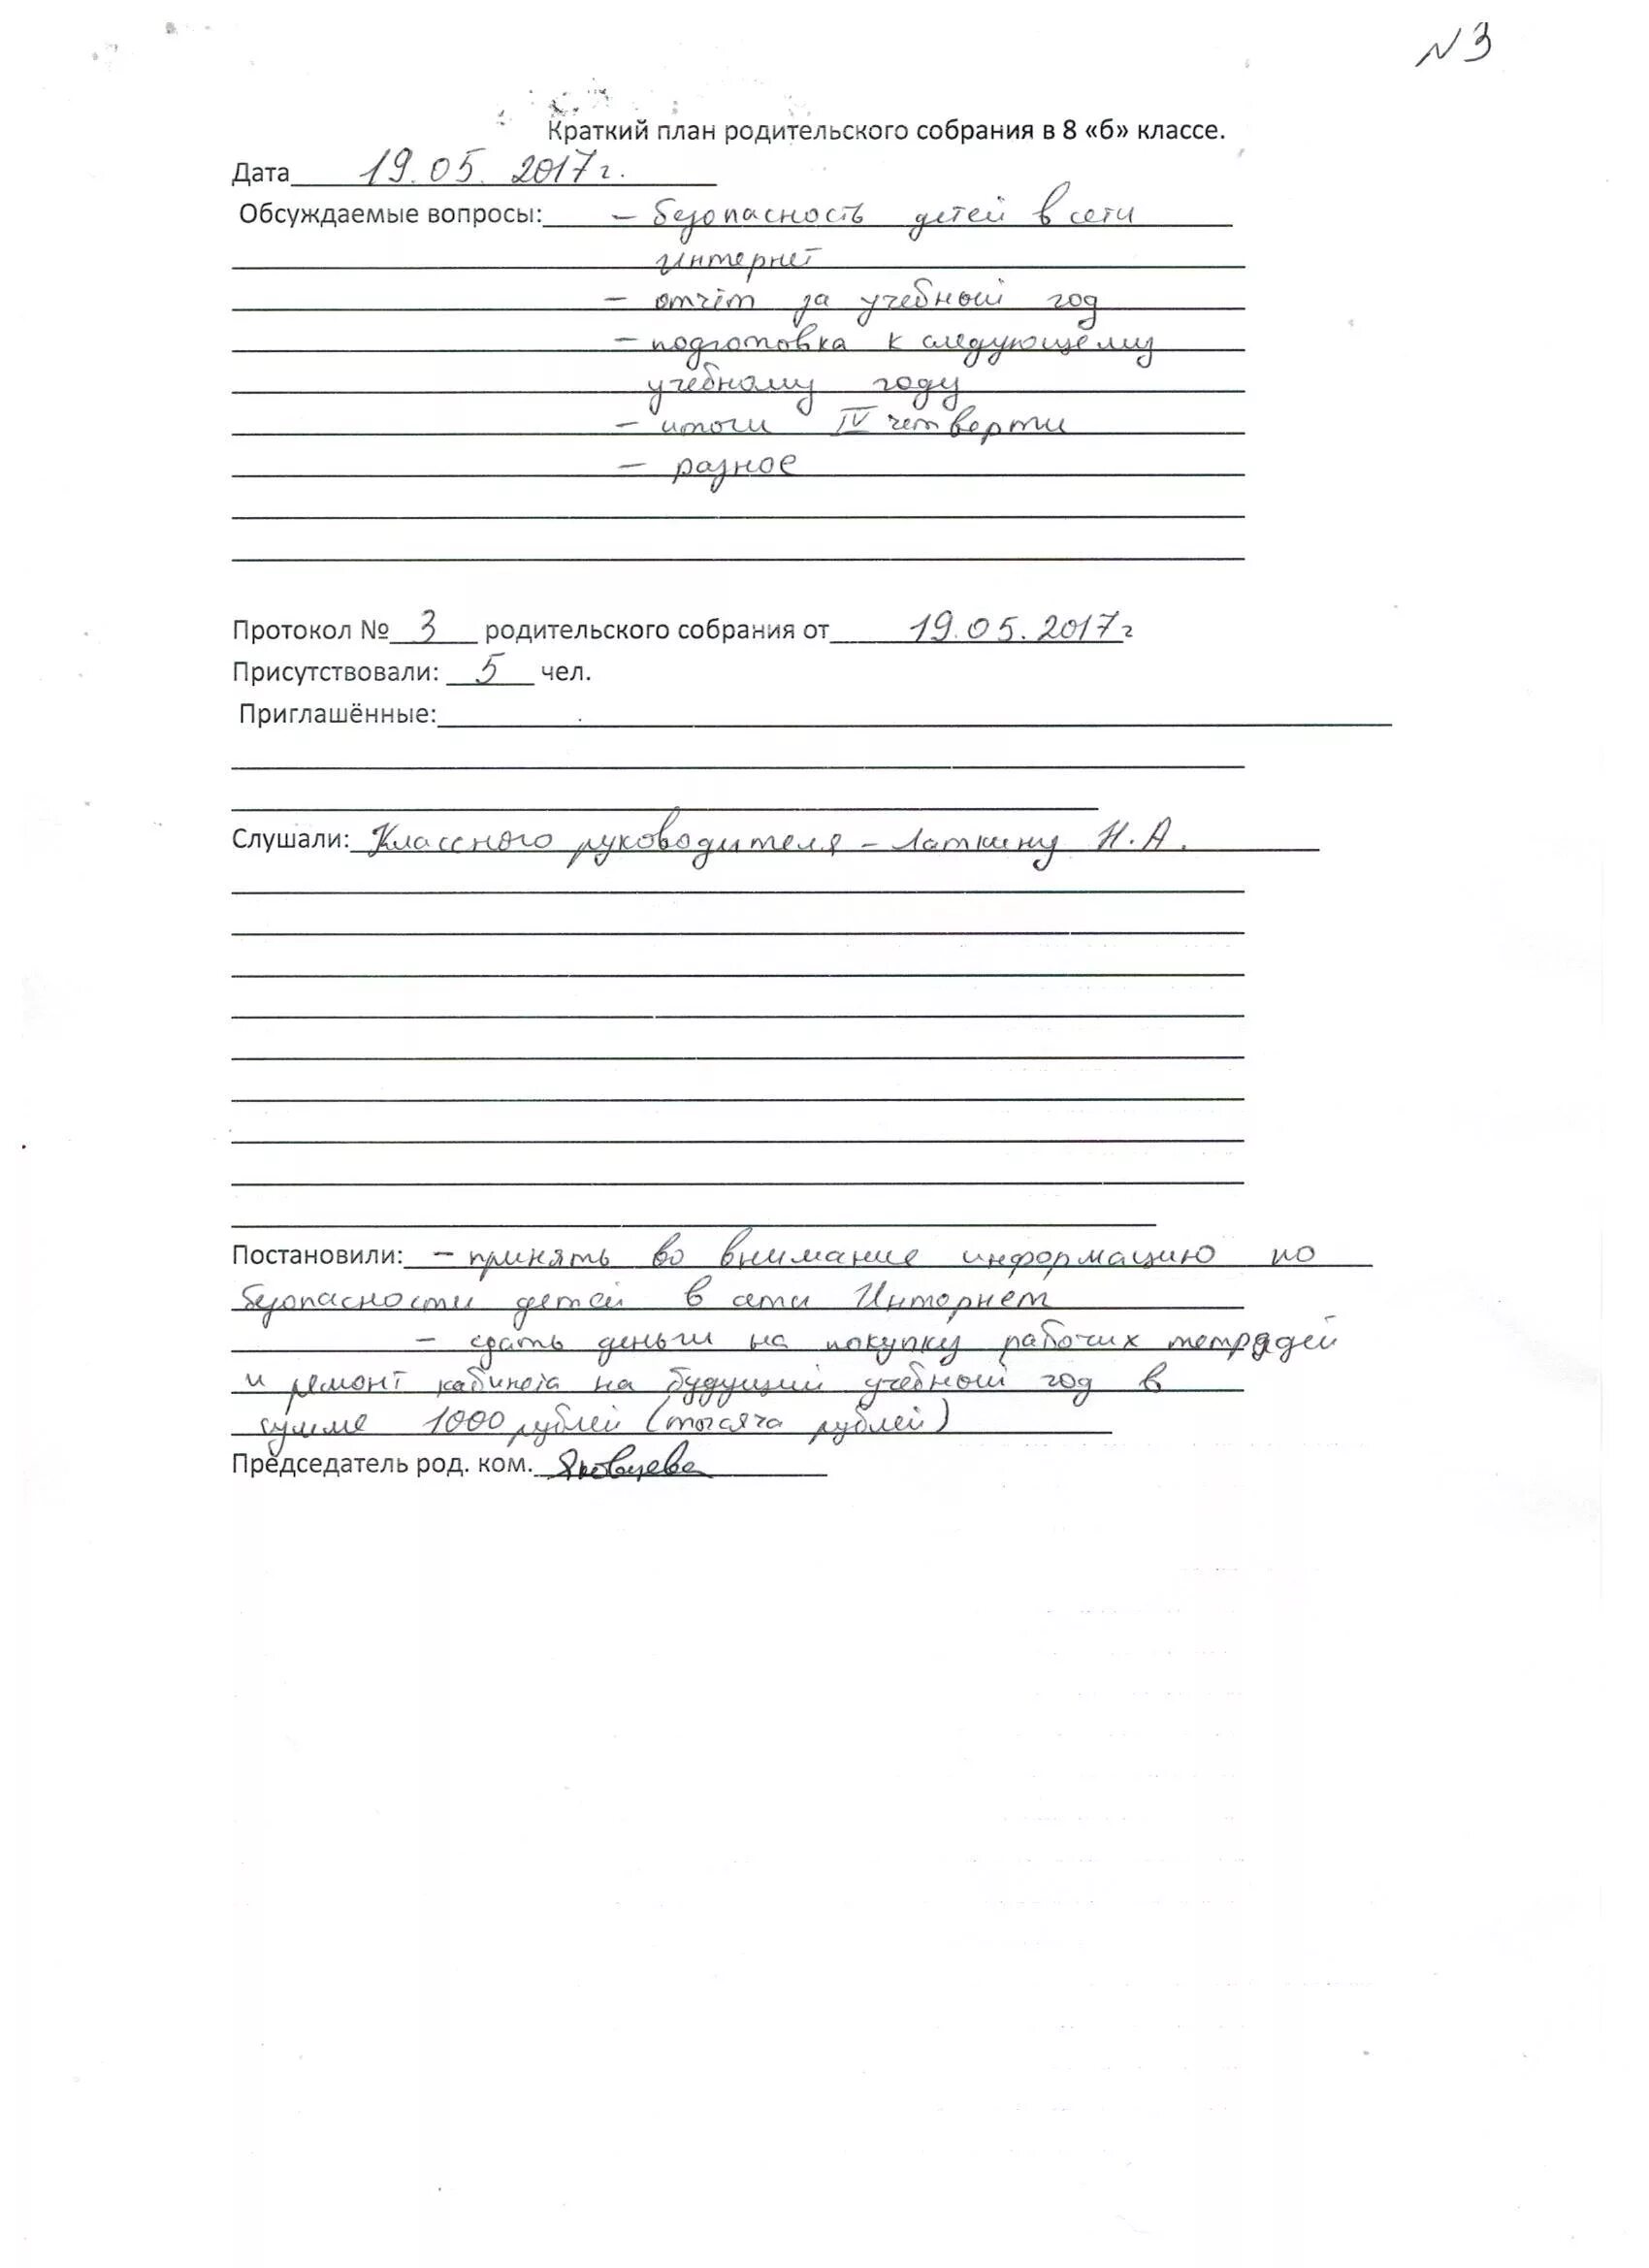 N 3
Краткий план родительского собрания в 8 «б» классе.
Дата 19.05. 2017г.
Обсуждаемые вопросы: – безопасность детей в сети
интернет
– отчёт за учебный год
– подготовка к следующему
учебному году
– итоги IV четверти
– разное
Протокол № 3 родительского собрания от 19.05.2017г
Присутствовали: 5 чел.
Приглашённые:
Слушали: Классного руководителя – Латкину Н.А.
Постановили: – принять во внимание информацию по
безопасности детей в сети Интернет
– сдать деньги на покупку рабочих тетрадей
и ремонт кабинета на будущий учебный год в
сумме 1000 рублей (тысяча рублей)
Председатель род. ком.